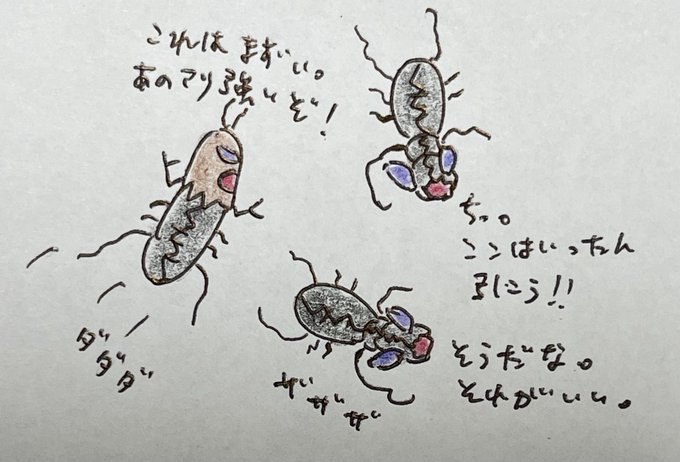 これは まずい。
あのアリ強いぞ!
ちっ。
ここはいったん
引こう!!
そうだな。
それがいい。
ダダダ
ザザザ